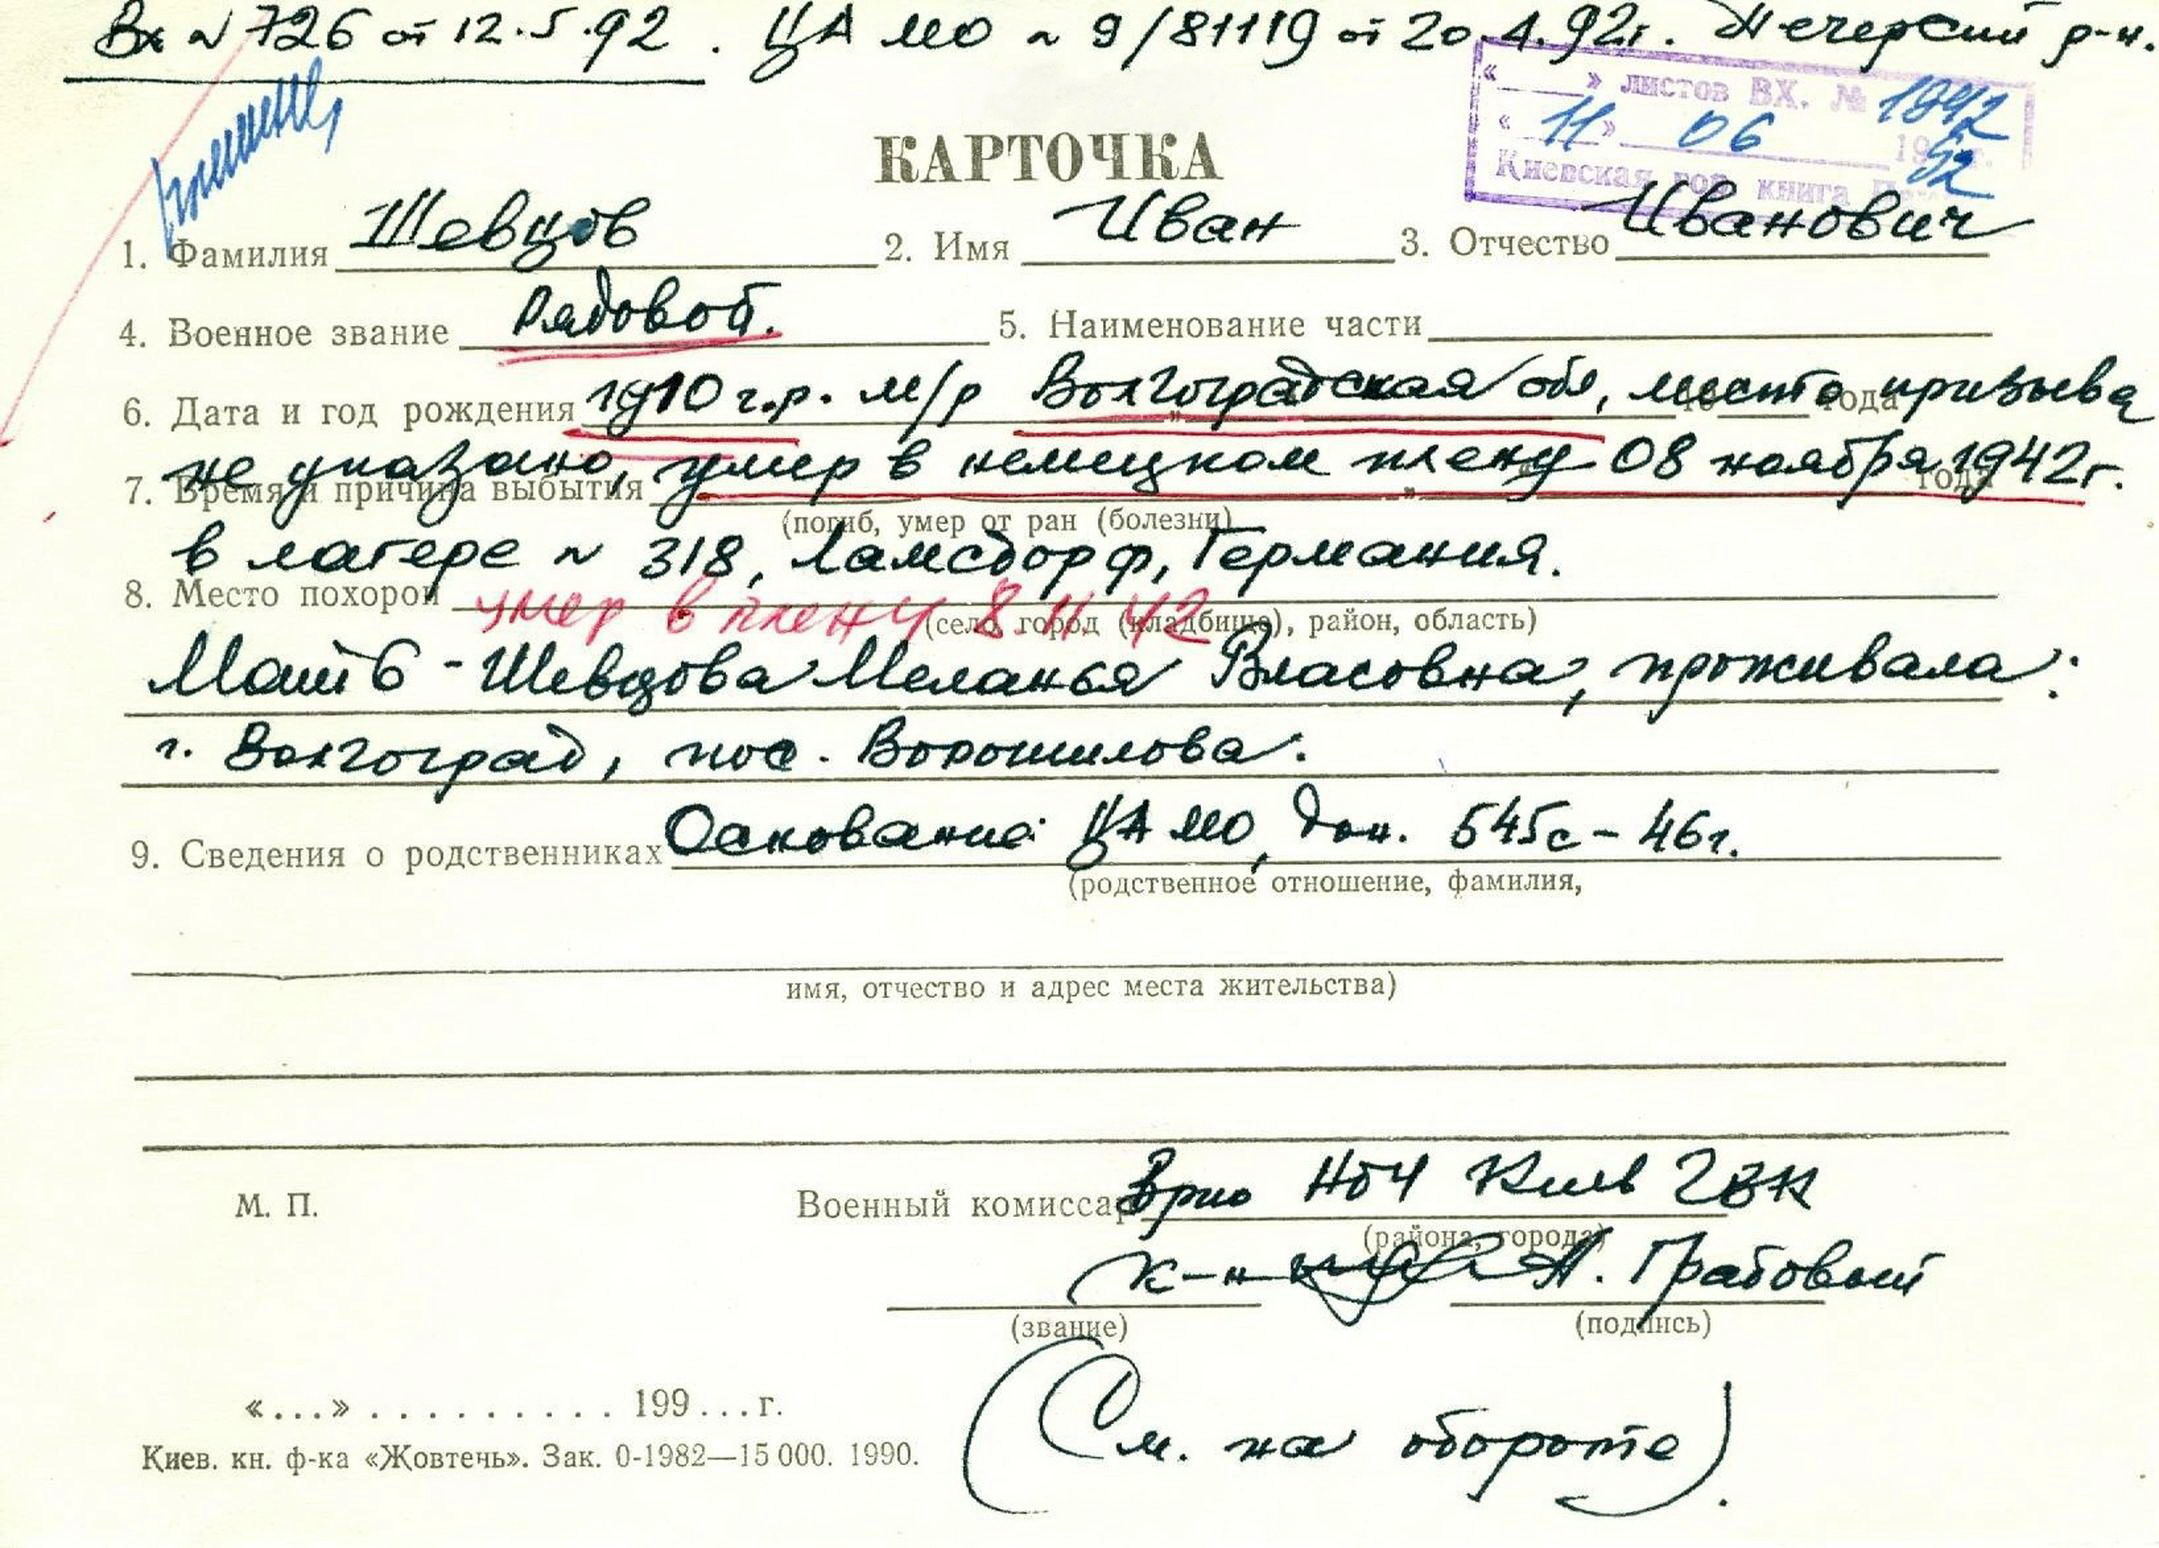 Вх № 726 от 12.5.92. ЦА МО № 9/81119 от 20.4.92г. Печерский р-н.
«____» листов ВХ. № 1842
«11» 06 19 г.
Киевская гор. книга
КАРТОЧКА
1. Фамилия Шевцов 2. Имя Иван 3. Отчество Иванович
4. Военное звание Рядовой. 5. Наименование части
6. Дата и год рождения 1910 г.р. м/р Волгоградская обл, место призыва
года
не указано, умер в немецком плену 08 ноября 1942г.
7. Время и причина выбытия года
(погиб, умер от ран (болезни)
в лагере № 318, Ламсдорф, Германия.
8. Место похорон умер в плену 8.11.42
(село, город (кладбище), район, область)
Мать - Шевцова Меланья Власовна, проживала:
г. Волгоград, пос. Ворошилова.
9. Сведения о родственниках Основание: ЦА МО, дон. 545с-46г.
(родственное отношение, фамилия,
имя, отчество и адрес места жительства)
М. П. Военный комиссар Врио НО4 Киев ГВК
(района, города)
к-н А. Грабовый
(звание) (подпись)
«...» .......... 199...г.
(См. на обороте).
Киев. кн. ф-ка «Жовтень». Зак. 0-1982—15 000. 1990.